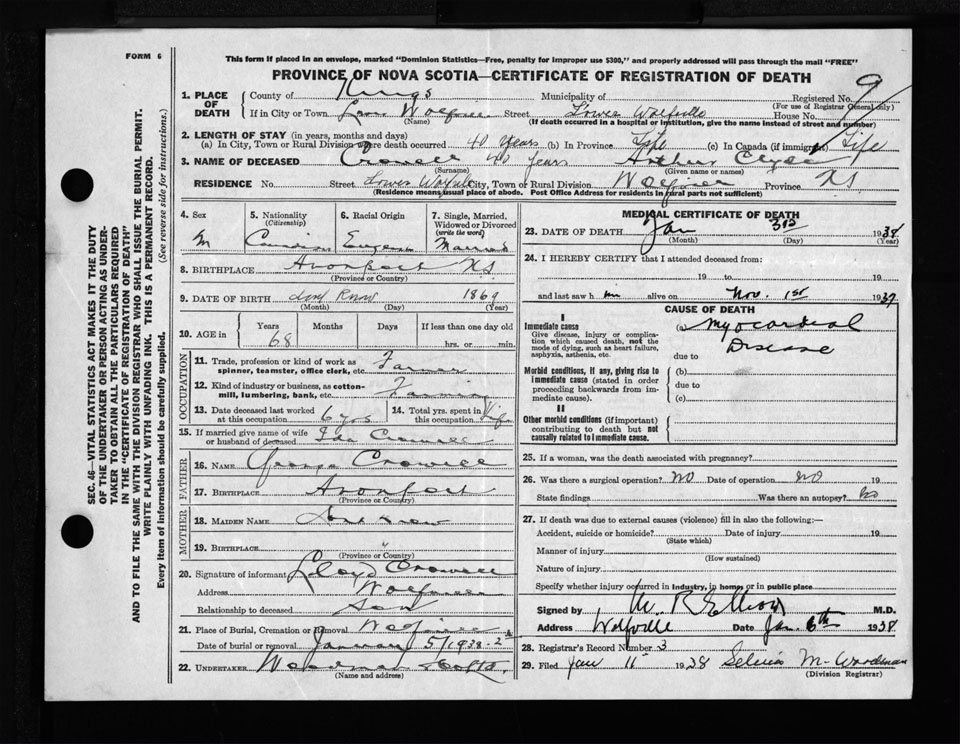 FORM 6
This form if placed in an envelope, marked "Dominion Statistics—Free, penalty for improper use $300," and properly addressed will pass through the mail "FREE"
PROVINCE OF NOVA SCOTIA—CERTIFICATE OF REGISTRATION OF DEATH
SEC. 46—VITAL STATISTICS ACT MAKES IT THE DUTY
OF THE UNDERTAKER OR PERSON ACTING AS UNDER-
TAKER TO OBTAIN ALL THE PARTICULARS REQUIRED
IN THE "CERTIFICATE OF REGISTRATION OF DEATH"
AND TO FILE THE SAME WITH THE DIVISION REGISTRAR WHO SHALL ISSUE THE BURIAL PERMIT.
WRITE PLAINLY WITH UNFADING INK. THIS IS A PERMANENT RECORD.
Every item of information should be carefully supplied. (See reverse side for instructions.)
1. PLACE OF DEATH County of Kings Municipality of Registered No. 9
(For use of Registrar General only)
If in City or Town Wolfville Street Lower Wolfville House No.
(Name) (If death occurred in a hospital or institution, give the name instead of street and number)
2. LENGTH OF STAY (in years, months and days)
(a) In City, Town or Rural Division where death occurred 40 Years (b) In Province Life (c) In Canada (if immigrant) Life
3. NAME OF DECEASED Crowell 40 Years Arthur Clyde
(Surname) (Given name or names)
RESIDENCE No. Street Lower Wolfville City, Town or Rural Division Wolfville Province NS
(Residence means usual place of abode. Post Office Address for residents in rural parts not sufficient)
4. Sex M
5. Nationality (Citizenship) Canadian
6. Racial Origin European
7. Single, Married, Widowed or Divorced (write the word) Married
8. BIRTHPLACE Avonport NS
(Province or Country)
9. DATE OF BIRTH dont Know 1869
(Month) (Day)
10. AGE in Years 68 Months Days If less than one day old hrs. or min.
OCCUPATION
11. Trade, profession or kind of work as spinner, teamster, office clerk, etc. Farmer
12. Kind of industry or business, as cotton-mill, lumbering, bank, etc. Farming
13. Date deceased last worked at this occupation 6 yrs
14. Total yrs. spent in this occupation Life
15. If married give name of wife or husband of deceased Ida Crowell
FATHER
16. NAME George Crowell
17. BIRTHPLACE Avonport
(Province or Country)
MOTHER
18. MAIDEN NAME dont know
19. BIRTHPLACE "
(Province or Country)
20. Signature of informant Lloyd Crowell
Address Wolfville
Relationship to deceased Son
21. Place of Burial, Cremation or Removal Wolfville
Date of burial or removal January 5/1938
22. UNDERTAKER Woodman
(Name and address)
MEDICAL CERTIFICATE OF DEATH
23. DATE OF DEATH Jan 3rd 1938
(Month) (Day) (Year)
24. I HEREBY CERTIFY that I attended deceased from:
19 to 19
and last saw h im alive on Nov. 1st 1937
CAUSE OF DEATH
I
Immediate cause (a) Myocardial
Give disease, injury or complication which caused death, not the mode of dying, such as heart failure, asphyxia, asthenia, etc. Disease
due to
Morbid conditions, if any, giving rise to immediate cause (stated in order proceeding backwards from immediate cause). (b)
due to
(c)
II
Other morbid conditions (if important) contributing to death but not causally related to immediate cause.
25. If a woman, was the death associated with pregnancy?
26. Was there a surgical operation? NO Date of operation NO 19
State findings Was there an autopsy? No
27. If death was due to external causes (violence) fill in also the following:—
Accident, suicide or homicide? Date of injury 19
(State which)
Manner of injury
(How sustained)
Nature of injury
Specify whether injury occurred in industry, in home, or in public place
Signed by M. R Elliott M.D.
Address Wolfville Date Jan. 6th 1938
28. Registrar's Record Number 3
29. Filed Jan 11 1938 M. Woodman
(Division Registrar)